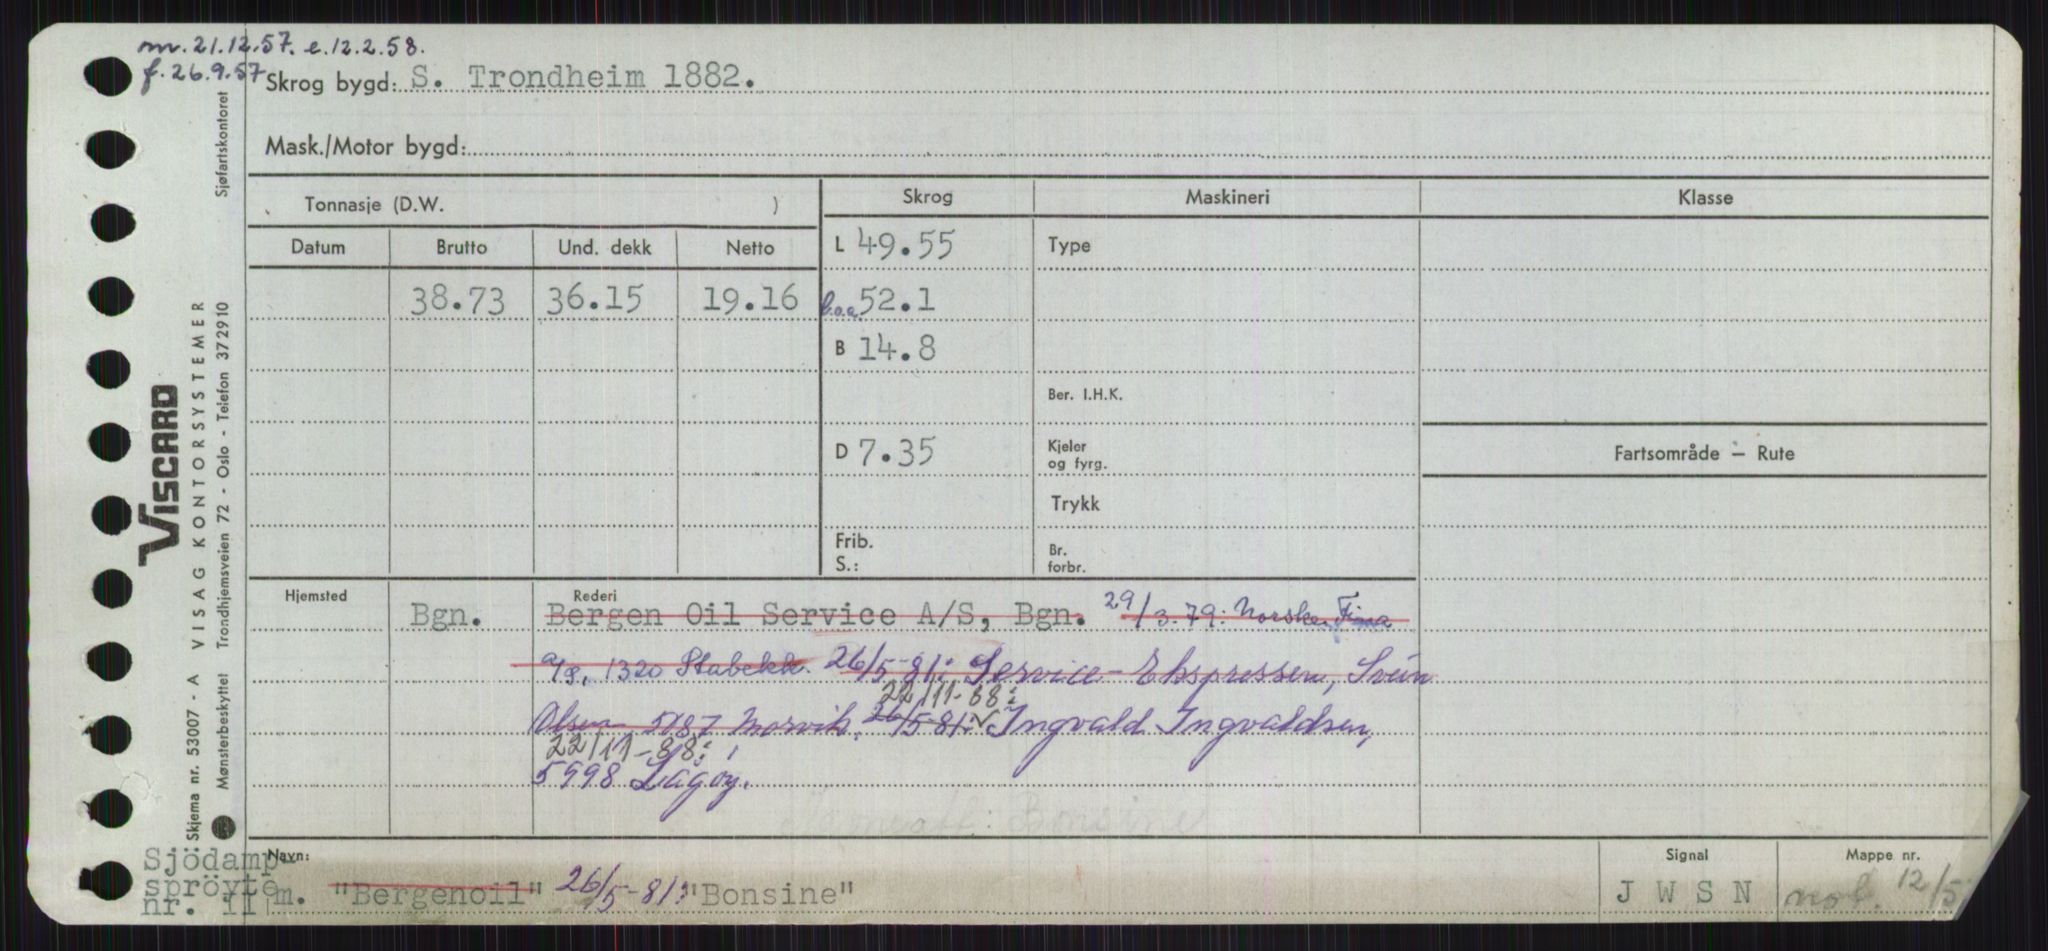 m. 21.12.57. e. 12.2.58.
f. 26.9.57
Skrog bygd: S. Trondheim 1882.
Mask./Motor bygd:
Sjøfartskontoret
VISCARD
VISAG KONTORSYSTEMER
Trondhjemsveien 72 - Oslo - Telefon 372910
Skjema nr. 53007 - A
Mønsterbeskyttet
Tonnasje (D.W. )
Skrog
Maskineri
Klasse
Datum
Brutto
Und. dekk
Netto
L 49.55
Type
38.73 36.15 19.16
b.o.a. 52.1
B 14.8
Ber. I.H.K.
D 7.35
Kjeler
og fyrg.
Fartsområde - Rute
Trykk
Frib.
S.:
Br.
forbr.
Hjemsted
Rederi
Bgn. Bergen Oil Service A/S, Bgn. 29/3.79: Norske Fina
a/s, 1320 Stabekk. 26/5-81: Service-Ekspressen, Svein
22/11-88:
Olsen 5187 Morvik. 26/5-81: ✓ Ingvald Ingvaldsen,
22/11-88:
5998 Lågøy.
Bonsine
Navn:
Signal
Mappe nr.
Sjödamp-
spröyte
nr. 11
m. "Bergenoil" 26/5-81: "Bonsine"
J W S N
12/5